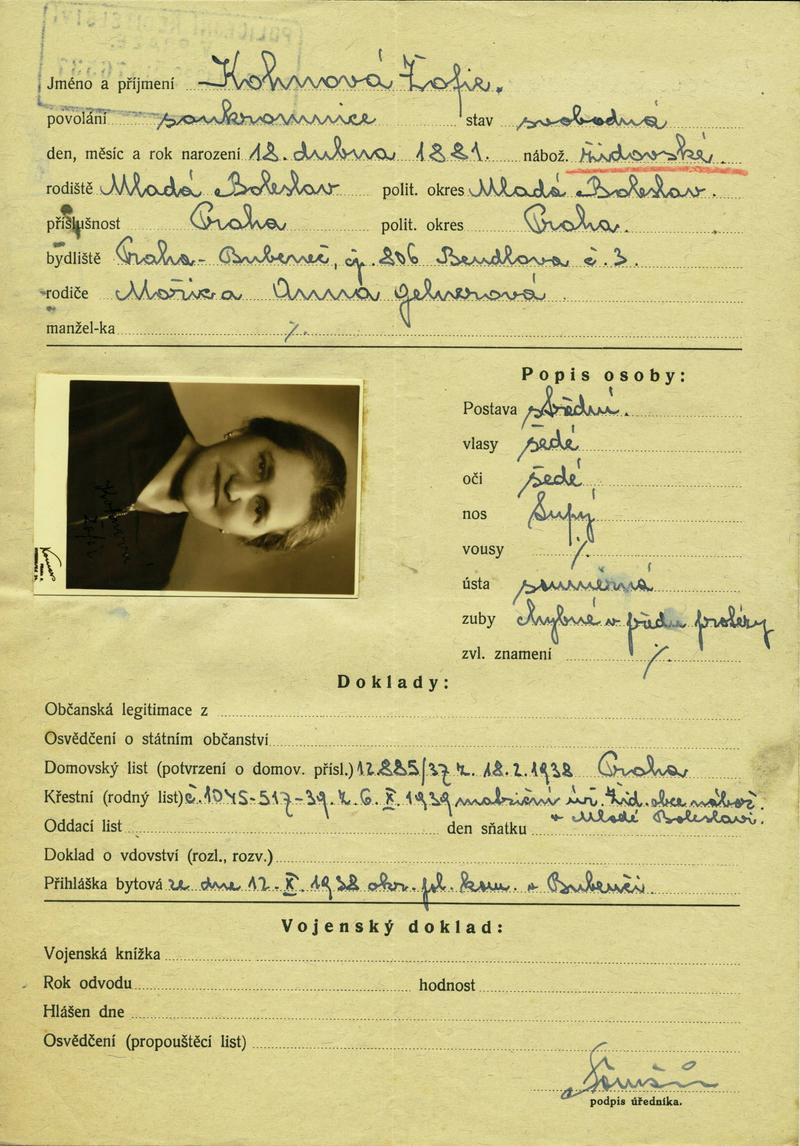 Jméno a příjmení Kohnová Žofie.
povolání soukromnice stav svobodná
den, měsíc a rok narození 12. dubna 1881. nábož. židovské.
rodiště Mladá Boleslav polit. okres Mladá Boleslav.
příslušnost Praha polit. okres Praha.
bydliště Praha - Bubeneč, čp. 206 Bendlova č. 3.
rodiče Mořic a Anna
manžel-ka /.
Popis osoby:
Postava střední.
vlasy šedé
oči šedé
nos tupý
vousy /.
ústa souměrná
zuby chybné v předu protézy
zvl. znamení /.
Doklady:
Občanská legitimace z
Osvědčení o státním občanství
Domovský list (potvrzení o domov. přísl.) 12.885/37 z. 18.2.1938 Praha
Křestní (rodný list) č. 1045-517-39. z. 6. X. 1939 matriční úř. žid. obce nábož.
v Mladé Boleslavi.
Oddací list den sňatku
Doklad o vdovství (rozl., rozv.)
Přihláška bytová ze dne 12. X. 1938 okr. pol. kom. v Bubenči.
Vojenský doklad:
Vojenská knížka
Rok odvodu hodnost
Hlášen dne
Osvědčení (propouštěcí list)
podpis úředníka.